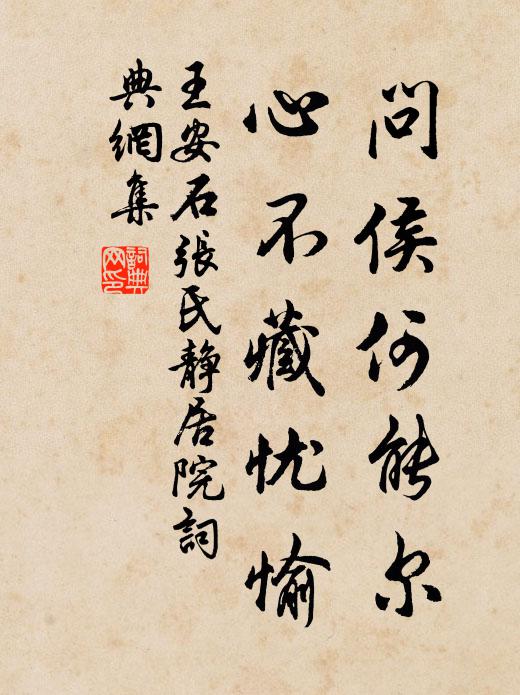 問侯何能尔
心不藏忧愉
王安石張氏静居院詞
典網集
詞典
网印